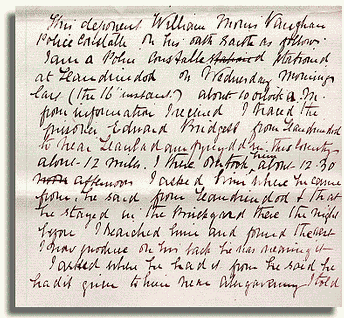 This deponent William Morris Vaughan
Police Constable on his oath saith as follows.
I am a Police Constable stationed
at Llandrindod on Wednesday morning
last (the 16th instant) about 10 o'clock A.M.
from information I received I traced the
prisoner Edward Bridgett from Llandrindod
to near Llanbadarnfynydd in this County
about 12 miles. I there overtook him about 12.30
noon afternoon I asked him where he came
from, he said from Llandrindod & that
he stayed in the Brickyard there the night
before I searched him and found the
I now produce on his back he was wearing it
I asked where he had it from he said he
had it given to him near Abergavenny I told